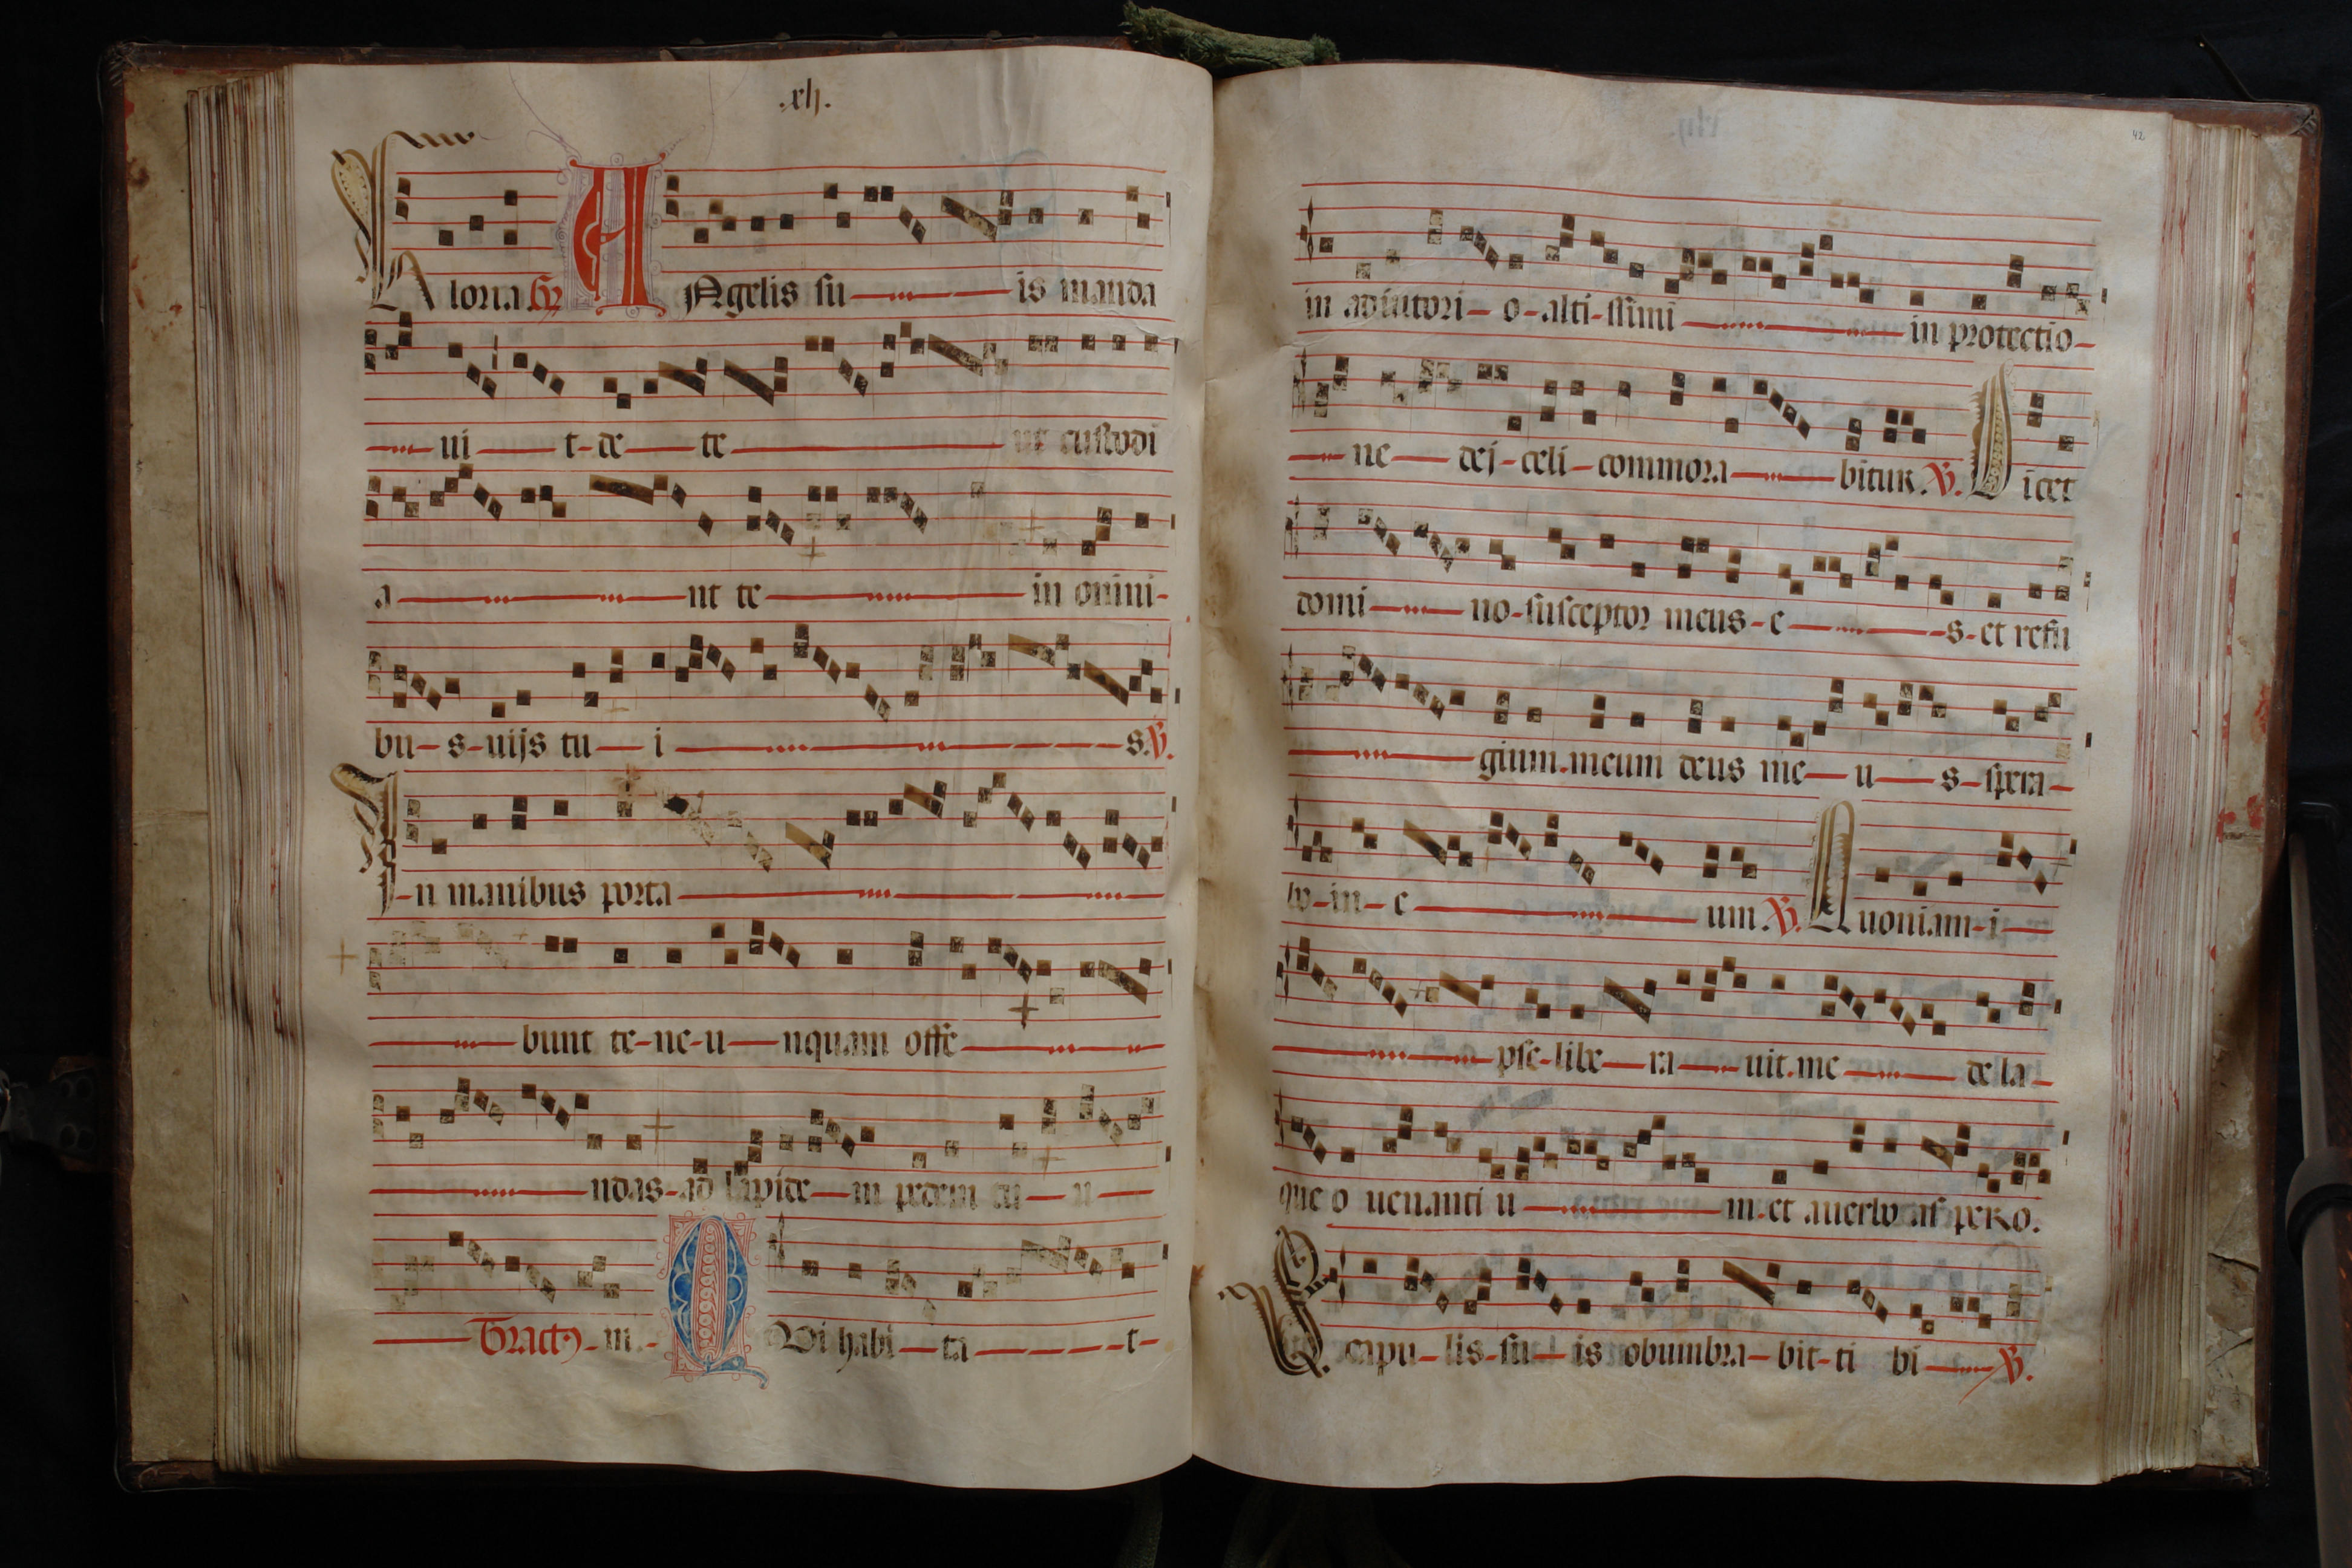 .xlj.
Gloria Gr Angelis su is manda
ui t-de te ut custodi
a nt te in omni-
bu-s-uijs tu i s. V.
I-n manibus porta
bunt te-ne-u nquam offe
ndas-ad lapide m pedem tu u
m. Tract9 QVi habi ta t-
42
in adiutori-o-alti-ssimi in protectio-
ne dej-celi-commora bitur. V. Dicet
domi no-susceptor meus-e s-et refu
gium.meum deus me u s-spera-
bo-in-e um. V. Quoniam-i
pse-libe ra uit.me de la-
que o uenanti u m.et auerbo aspero.
Scapu-lis-su-is obumbra-bit-ti bi V.